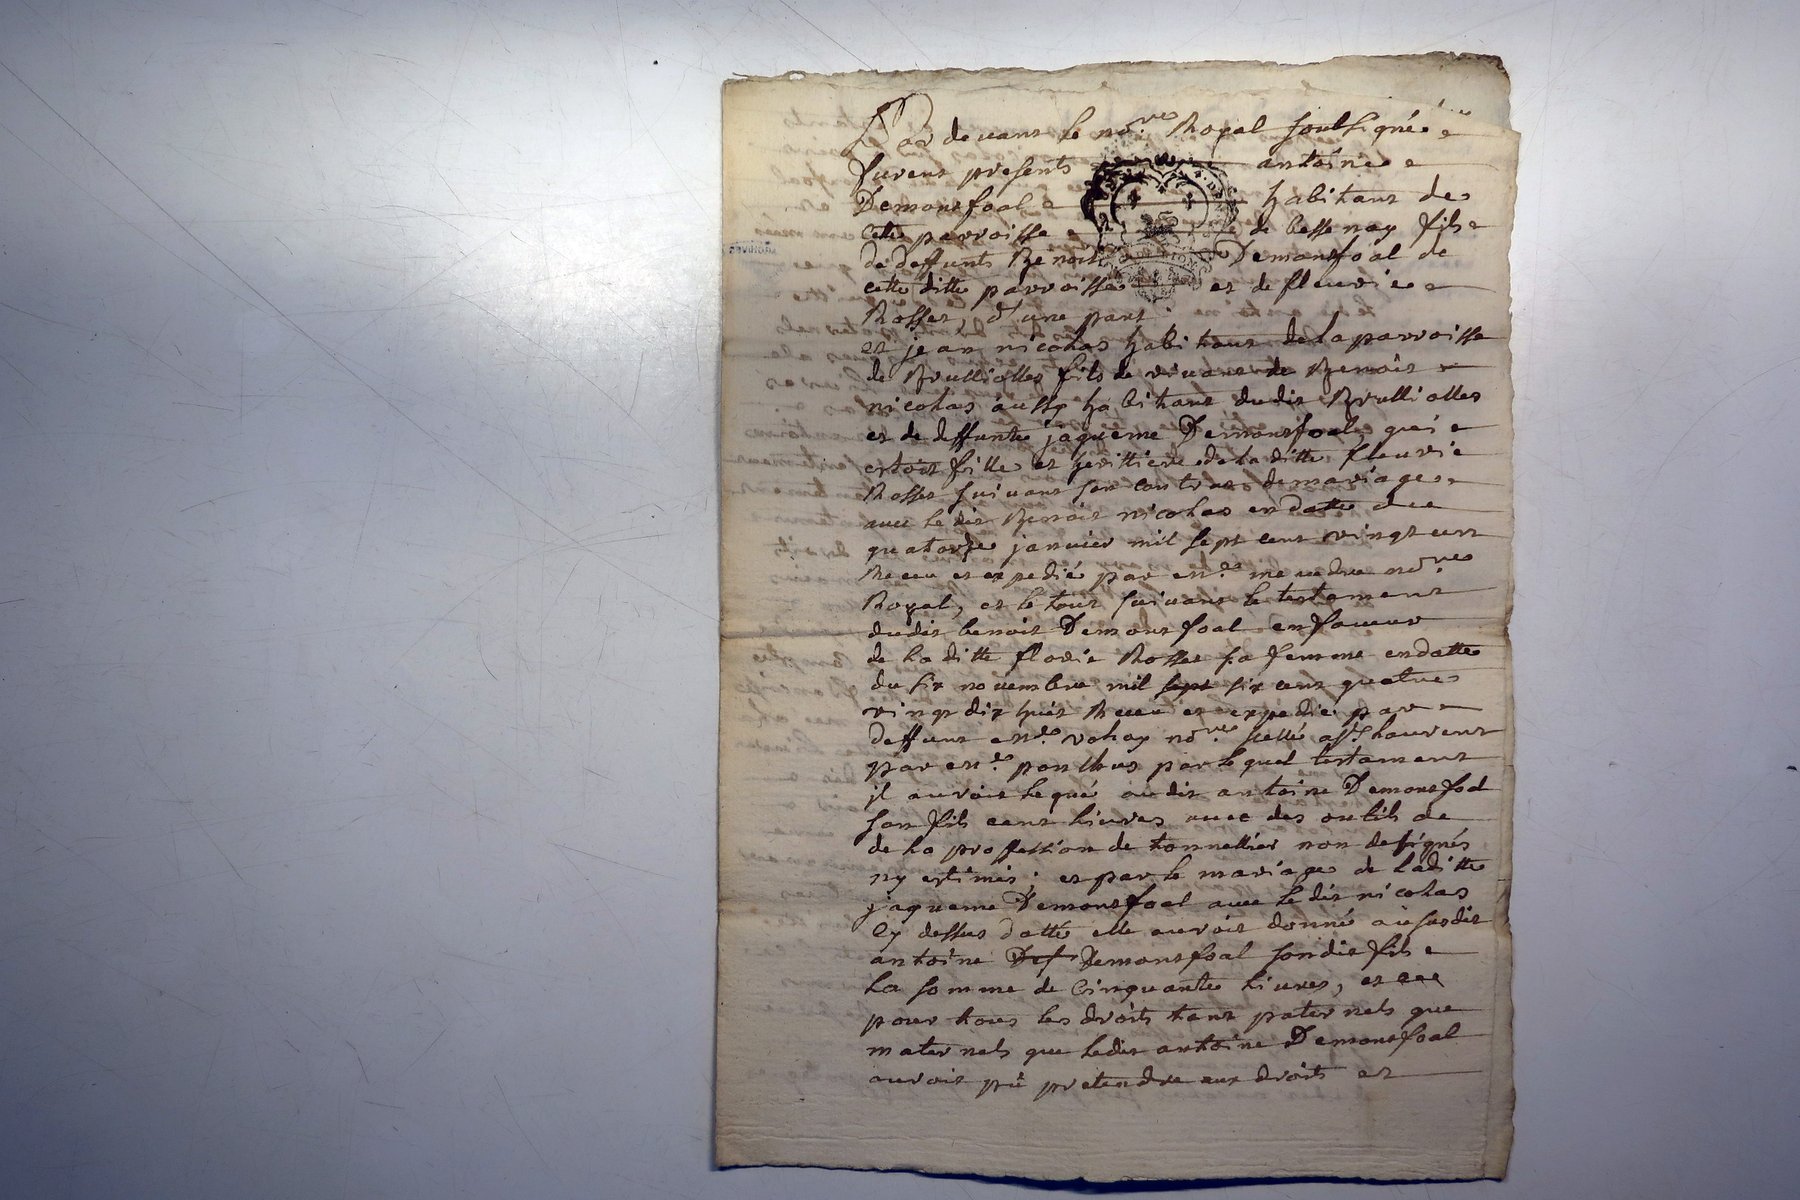 Par devant le no.re Royal soubsigné
furent presents antoine
Demontfoal habitant de
cette parroisse de bessenay fils
de deffunts Benoit Demontfoal de
cette ditte parroisse et de fleurie
Rosset, d'une part
et jean nicolas habitant de la parroisse
de Brulliolles fils de vivant de Benoit
nicolas aussy habitant dudit Brulliolles
et de deffunte jaqueme Demontfoal, qui
estoit fille et heritiere de la ditte fleurie
Rosset suivant son contrat de mariage
avec ledit Benoit nicolas en datte du
quatorze janvier mil sept cent vingt un
Receu et expedié par no.re
Royal, et le tout suivant le testament
dudit benoit Demontfoal en faveur
de la ditte florie Rosset sa femme en datte
du six novembre mil sept six cent quatre
vingt dix huit Receu et expedié par
deffunt no.re scellé a St Laurent
par ponthus par lequel testament
il auroit legué audit antoine Demontfoal
son fils cent livres avec des outils de
de la proffession de tonnellier non designés
ny estimés. et par le mariage de laditte
jaqueme Demontfoal avec ledit nicolas
Cy dessus datté elle auroit donné au susdit
antoine Def Demontfoal sondit fils
la somme de Cinquante livres, et
pour tous les droits tant paternels que
maternels que ledit antoine Demontfoal
auroit pû pretendre aux droits et